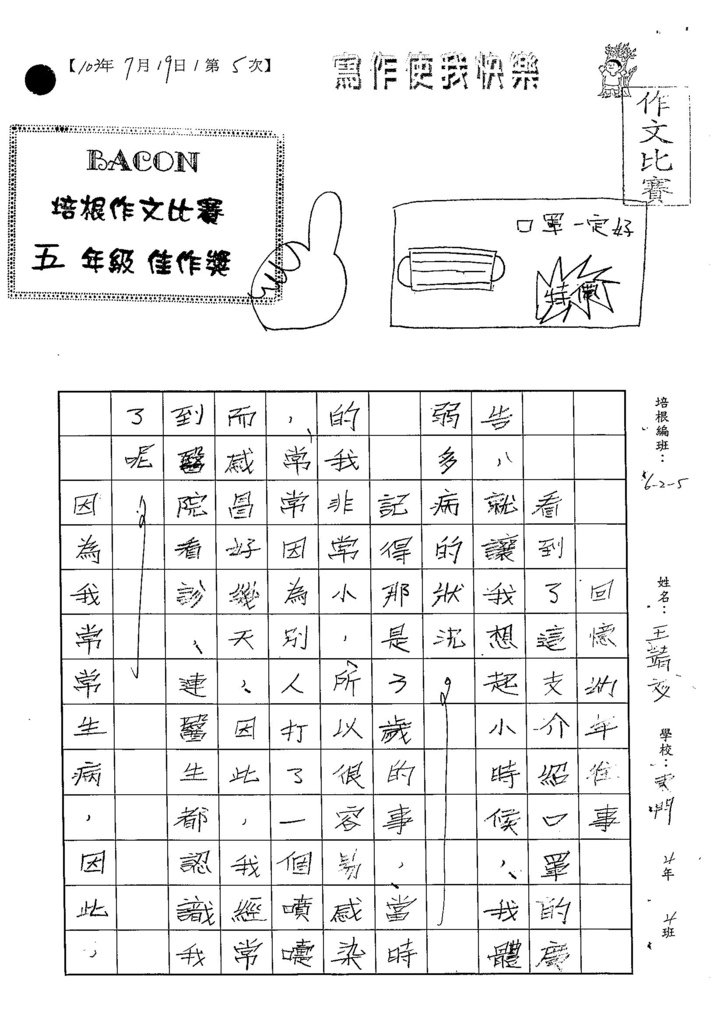 【103年7月19日/第5次】
寫作使我快樂
作文比賽
BACON
培根作文比賽
五年級佳作獎
口罩一定好
特價
培根編班：
6-2-5
姓名：王
學校：
4年
4班
回憶幼年往事
看到了這支介紹口罩的廣
告，就讓我想起小時候，我的體
弱多病的狀況。
記得那是3歲的事，當時
的我非常小，所以很容易感染
，常常因為別人打了一個噴嚏
而感冒好幾天，因此，我經常
到醫院看診，連醫生都認識我
了呢！
因為我常常生病，因此，